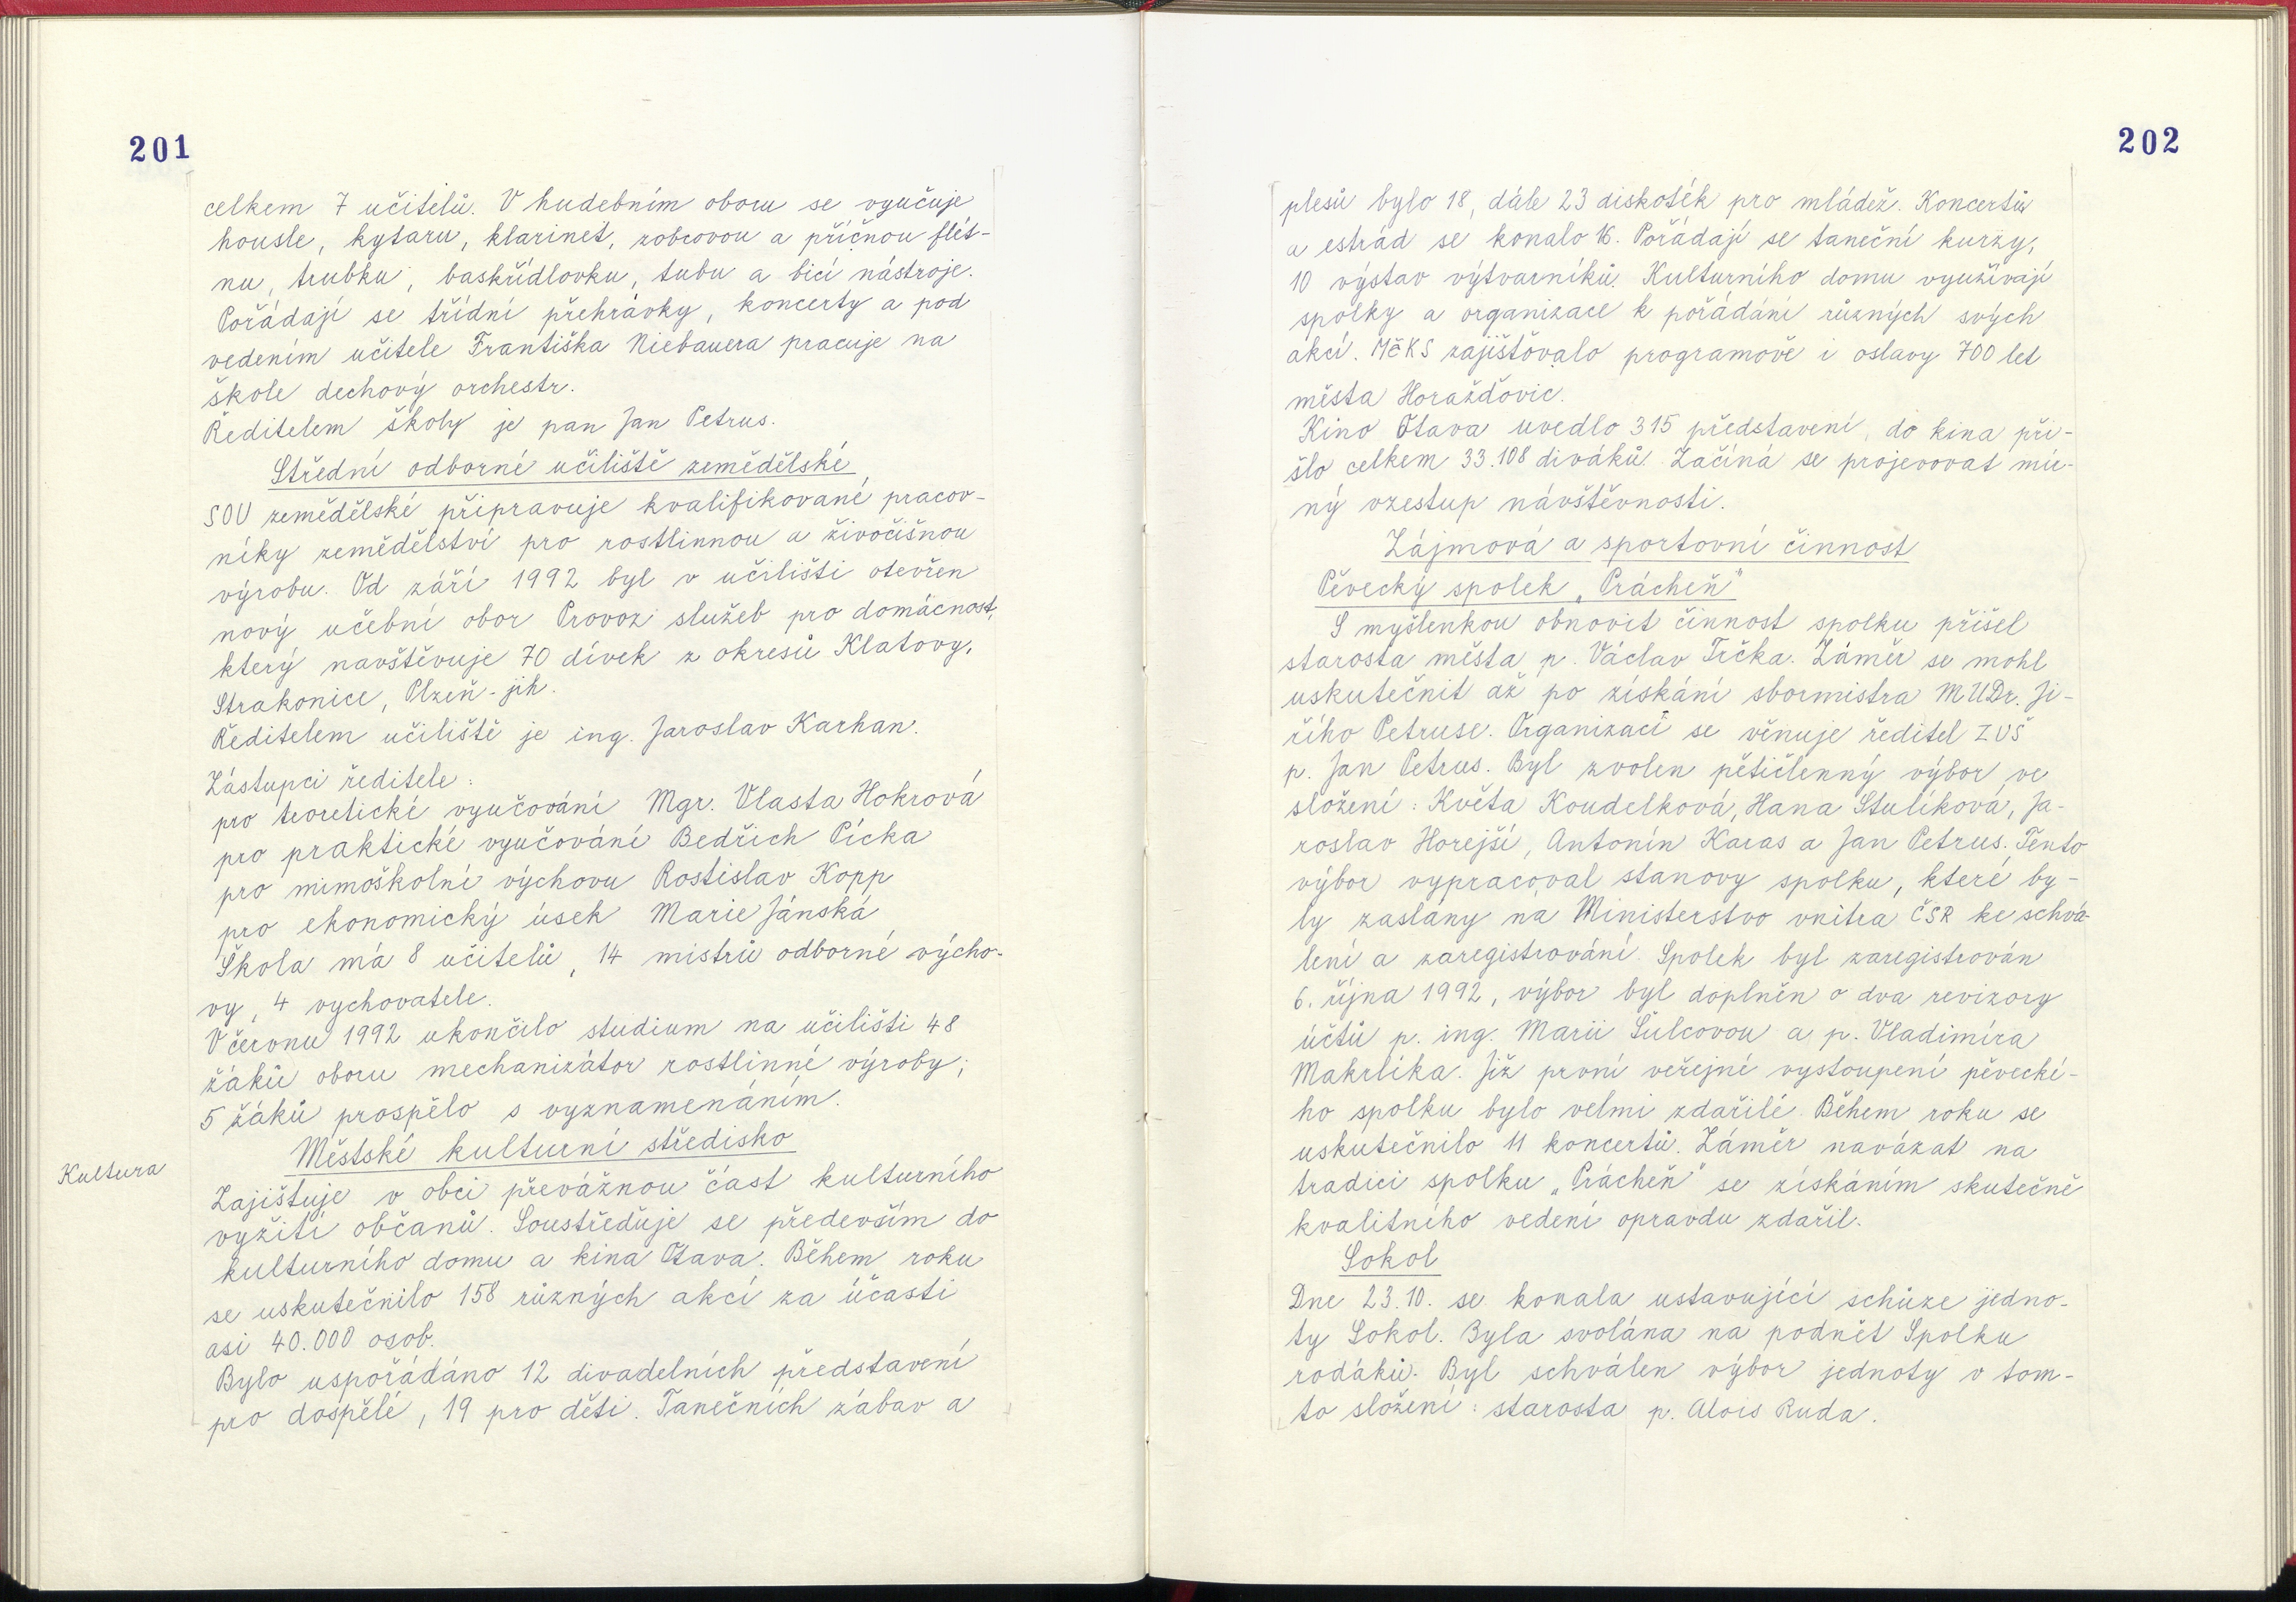 201
celkem 7 učitelů. V hudebním oboru se vyučuje
housle, kytaru, klarinet, zobcovou a příčnou flét-
nu, trubku, baskřídlovku, tubu a bicí nástroje.
Pořádají se třídní přehrávky, koncerty a pod
vedením učitele Františka Niebauera pracuje na
škole dechový orchestr.
Ředitelem školy je pan Jan Petrus.
Střední odborné učiliště zemědělské
SOU zemědělské připravuje kvalifikované pracov-
níky zemědělství pro rostlinnou a živočišnou
výrobu. Od září 1992 byl v učilišti otevřen
nový učební obor Provoz služeb pro domácnost,
který navštěvuje 70 dívek z okresů Klatovy,
Strakonice, Plzeň-jih.
Ředitelem učiliště je ing. Jaroslav Karhan.
Zástupci ředitele:
pro teoretické vyučování Mgr. Vlasta Hokrová
pro praktické vyučování Bedřich Pícka
pro mimoškolní výchovu Rostislav Kopp
pro ekonomický úsek Marie Jánská
Škola má 8 učitelů, 14 mistrů odborné výcho-
vy, 4 vychovatele.
V červnu 1992 ukončilo studium na učilišti 48
žáků oboru mechanizátor rostlinné výroby;
5 žáků prospělo s vyznamenáním.
Městské kulturní středisko
Kultura
Zajištuje v obci převážnou část kulturního
vyžití občanů. Soustřeďuje se především do
kulturního domu a kina Otava. Během roku
se uskutečnilo 158 různých akcí za účasti
asi 40.000 osob.
Bylo uspořádáno 12 divadelních představení
pro dospělé, 19 pro děti. Tanečních zábav a
202
plesů bylo 18, dále 23 diskoték pro mládež. Koncertů
a estrád se konalo 16. Pořádají se taneční kurzy,
10 výstav výtvarníků. Kulturního domu využívají
spolky a organizace k pořádání různých svých
akcí. MěKS zajišťovalo programově i oslavy 700 let
města Horažďovic.
Kino Otava uvedlo 315 představení, do kina při-
šlo celkem 33.108 diváků. Začíná se projevovat mír-
ný vzestup návštěvnosti.
Zájmová a sportovní činnost
Pěvecký spolek „Prácheň"
S myšlenkou obnovit činnost spolku přišel
starosta města p. Václav Trčka. Záměr se mohl
uskutečnit až po získání sbormistra MUDr. Ji-
řího Petruse. Organizaci se věnuje ředitel ZUŠ
p. Jan Petrus. Byl zvolen pětičlenný výbor ve
složení: Květa Koudelková, Hana Stulíková, Ja-
roslav Horejší, Antonín Karas a Jan Petrus. Tento
výbor vypracoval stanovy spolku, které by-
ly zaslány na Ministerstvo vnitra ČSR ke schvá-
lení a zaregistrování. Spolek byl zaregistrován
6. října 1992, výbor byl doplněn o dva revizory
účtů p. ing. Marii Šulcovou a p. Vladimíra
Makrlíka. Již první veřejné vystoupení pěvecké-
ho spolku bylo velmi zdařilé. Během roku se
uskutečnilo 11 koncertů. Záměr navázat na
tradici spolku „Prácheň" se získáním skutečně
kvalitního vedení opravdu zdařil.
Sokol
Dne 23.10. se konala ustavující schůze jedno-
ty Sokol. Byla svolána na podnět Spolku
rodáků. Byl schválen výbor jednoty v tom-
to složení: starosta p. Alois Ruda.